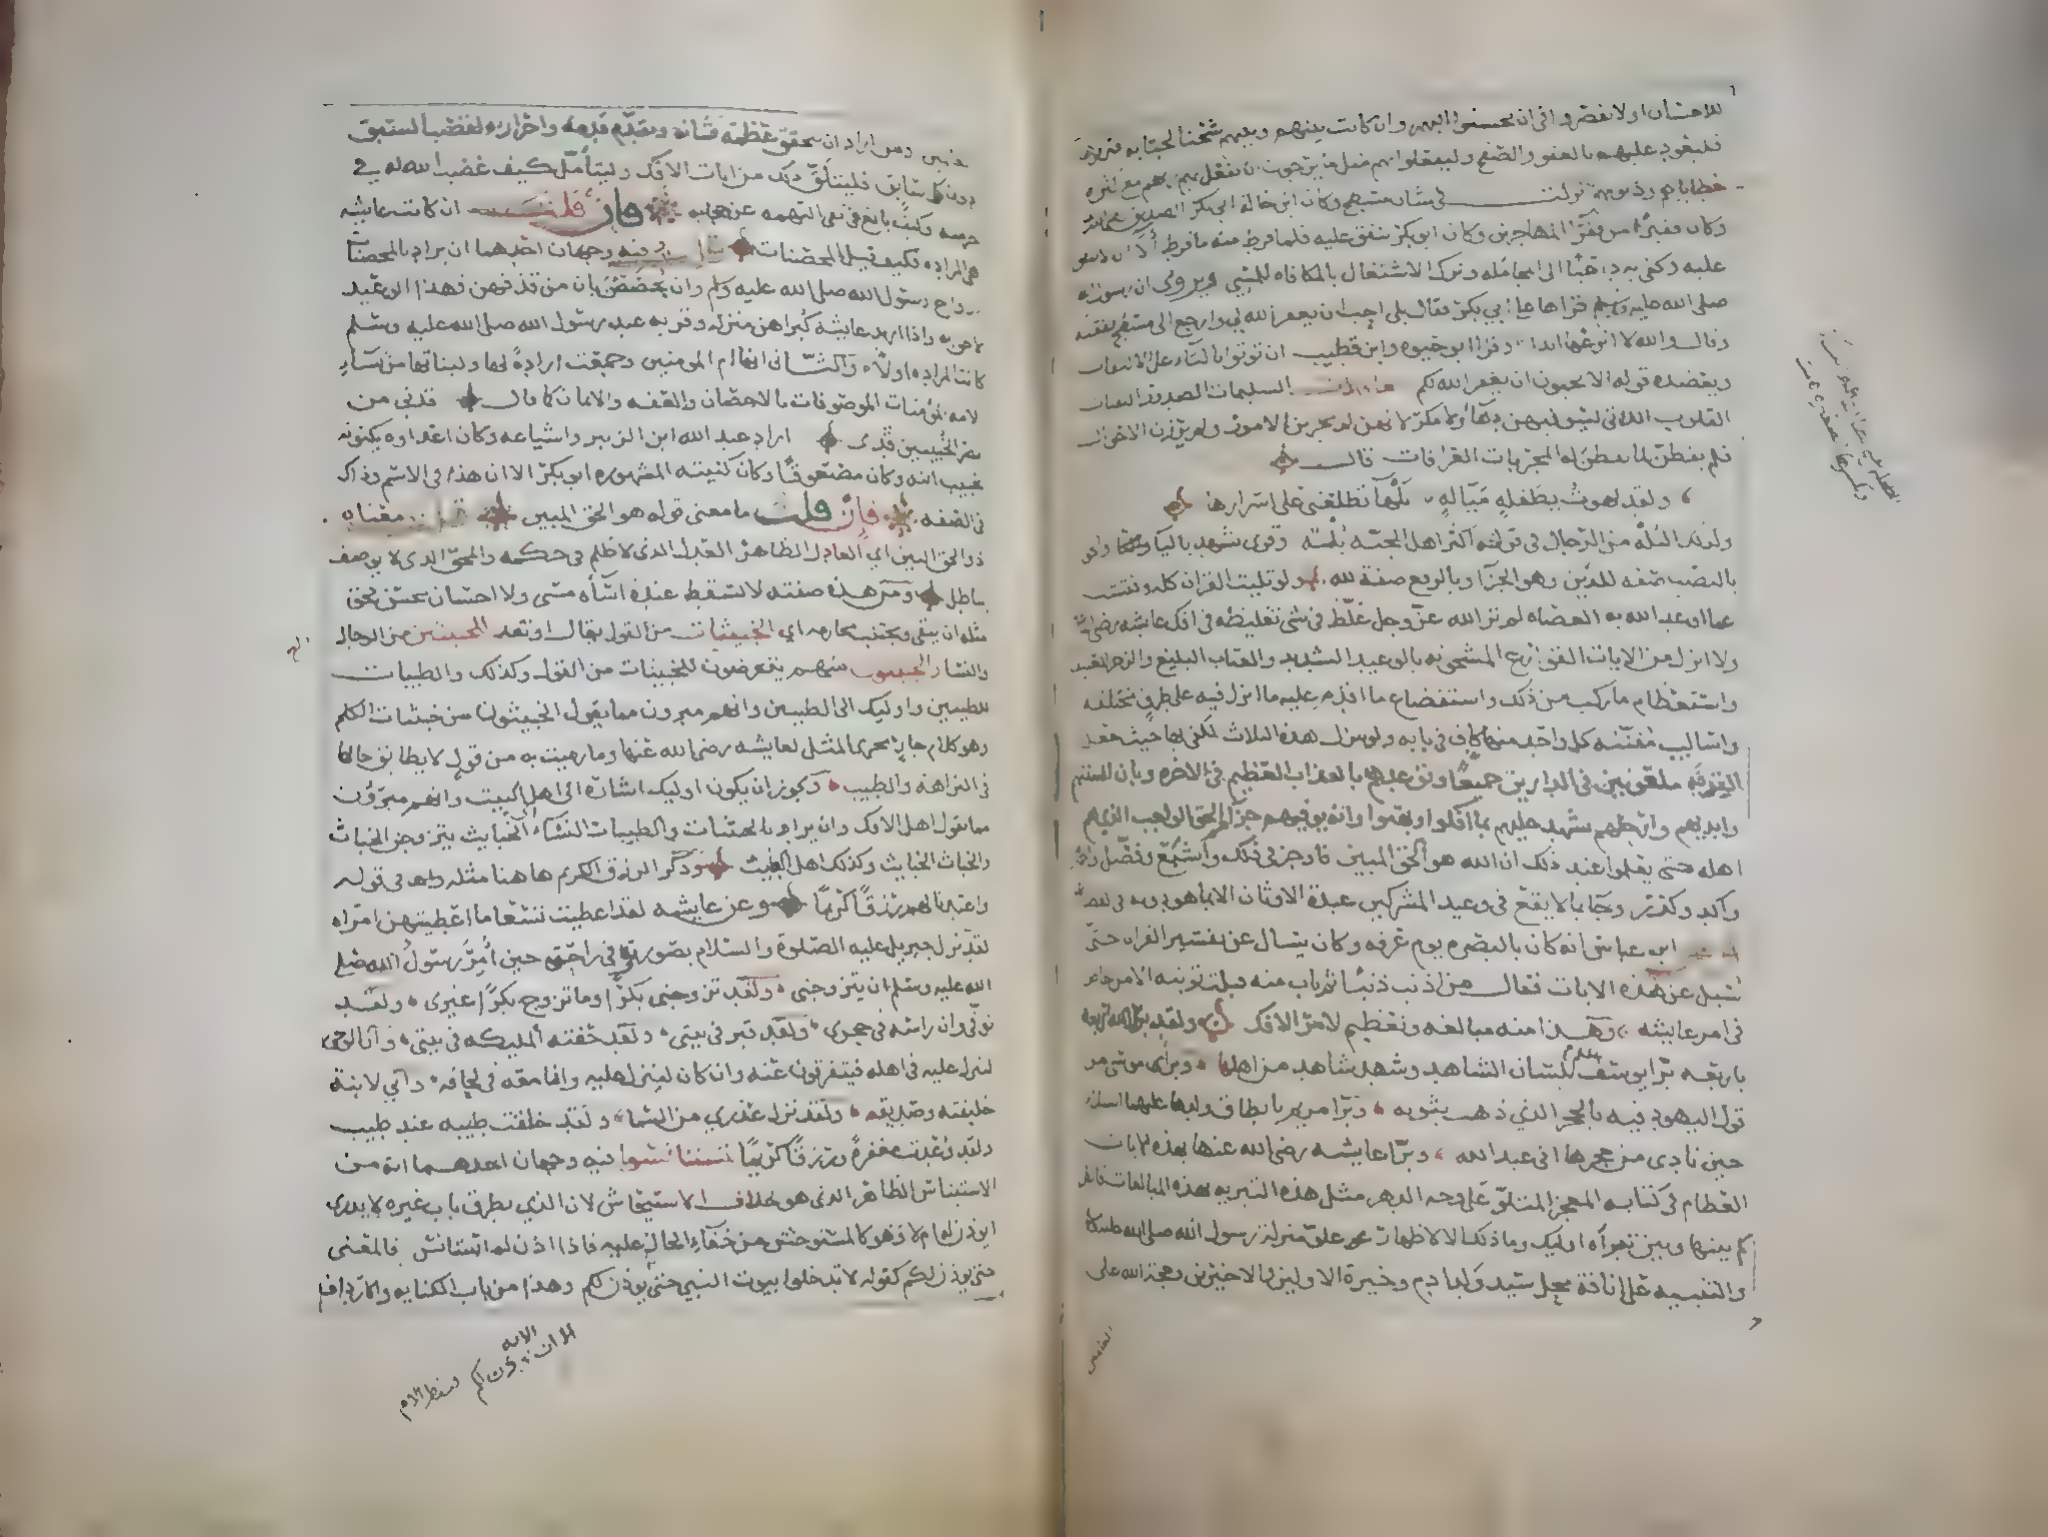 للاحسان او لا يقصروا في ان يحسنوا اليهم وان كانت بينهم وبينهم شحنا لجنايه اقترفوها
فليعودوا عليهم بالعفو والصفح وليفعلوا بهم مثل ما يرجون ان يفعل بهم ربهم مع كثره
خطاياهم وذنوبهم نزلت في شان مسطح وكان ابن خاله ابي بكر الصديق
وكان فقيرا من فقرا المهاجرين وكان ابو بكر ينفق عليه فلما فرط منه ما فرط آلى ان لا ينفق
عليه وكفى به داعيًا الى المجامله وترك الاشتغال بالمكافاه للمسي ويروى ان رسول الله
صلى الله عليه وسلم قراها على ابي بكر فقال بلى احب ان يغفر الله لي وارجع الى مسطح نفقته
وقال والله لا انزعها ابدا وقرا ابو حيوه وابن قطيب ان توتوا بالتاء على الالتفات
ويعضده قوله الا تحبون ان يغفر الله لكم السليمات الصدور النقيات
القلوب اللاتي ليس فيهن دهاء ولا مكر لانهن لم يجربن الامور ولم يرزن الاحوال
فلم يفطن لما يفطن له المجربات العرافات قال
ولقد لهوت بطفله ميّالهٍ بلهآ تطلعني على اسرارها
وكذلك البُلْه من الرجال في قوله اكثر اهل الجنه البُلْه وقرى يشهد باليا والحق
بالنصب صفه للدين وهو الجزآ وبالرفع صفة لله ولو فليت القران كله وفتشت
عما اوعد الله به العصاه لم تر الله عز وجل غلّظ في شي تغليظه في افك عايشه رضي الله
ولا انزل من الايات القوارع المشحونه بالوعيد الشديد والعتاب البليغ والزجر العنيف
واستعظام ما ركب من ذلك واستفضاع ما اقدم عليه ما انزل فيه على طرق مختلفه
واساليب مفتنّه كل واحد منها كاف في بابه ولو لم ينزل الا هذه الثلاث لكفى بها حيث جعل
القذفه ملعونين في الدارين جميعًا وتوعدهم بالعذاب العظيم في الاخره وبان السنتهم
وايديهم وارجلهم تشهد عليهم بما افكوا وبهتوا وانه يوفيهم جزآهم الحق الواجب الذي هم
اهله حتى يعلموا عند ذلك ان الله هو الحق المبين فاوجز في ذلك واشبع وفصّل واجمل
واكد وكرر وجآ بما لا يقع في وعيد المشركين عبدة الاوثان الا بما هو دونه في الفضاعه
ابن عباس انه كان بالبصره يوم عرفه وكان يسال عن تفسير القران حتى
سُيل عن هذه الايات فقال من اذنب ذنبًا ثم تاب منه قبلت توبته الا من خاض
في امر عايشه وهذا منه مبالغه وتعظيم لامر الافك ولقد برّا الله اربعه
باربعه برّا يوسف بلسان الشاهد وشهد شاهد من اهلها وبرّأ موسى من
قول اليهود فيه بالحجر الذي ذهب بثوبه وبرّا مريم بانطاق ولدها عليهما السلام
حين نادى من حجرها اني عبد الله وبرّا عايشه رضي الله عنها بهذه الايات
العظام في كتابه المعجز المتلوّ على وجه الدهر مثل هذه التبريه بهذه المبالغات فانظر
كم بينها وبين تبرأه اوليك وما ذلك الا لاظهار علو منزلة رسول الله صلى الله عليه
والتنبيه على انافة محل سيد ولد ادم وخيرة الاولين والاخرين وحجة الله على
العالمين
ومن اراد ان يتحقق عظمه شانه وتقدّم قدمه واحرازه لقصب السبق
دون كل سابق فليتلقّ ذلك من ايات الافك وليتأمّل كيف غضب الله له في
حرمته وكيف بالغ في نفي التهمه عن حجابه فان قلت ان كانت عايشه
هي المراده فكيف قيل المحصنات فيه وجهان احدهما ان يراد بالمحصنات
ازواج رسول الله صلى الله عليه وسلم وان يخصّصن بان من قذفهن فهذا الوعيد
لاحق به واذا اردن عايشه كبراهن منزله وقربه عند رسول الله صلى الله عليه وسلم
كانت المراده اولا والثاني انها ام المومنين فجمعت ارادةً لها ولبناتها من نسآء
الامه المؤمنات الموصوفات بالاحصان والغفله والايمان كما قال قدني من
نصر الخُبيبين قدى اراد عبد الله ابن الزبير واشياعه وكان اعداوه يكنونه
بخبيب ابنه وكان مضعوفًا وكان كنيته المشهوره ابو بكر الا ان هذا في الاسم وذاك
في الصفه فان قلت ما معنى قوله هو الحق المبين معناه
ذو الحق المبين اي العادل الظاهر العدل الذي لا ظلم في حكمه والمحق الذي لا يوصف
بباطل ومن هذه صفته لا تسقط عنده اسآه مسي ولا احسان محسن فحق
مثله ان يتقى ويجتنب محارمه اي الخبيثات من القول يقال او تعد للخبيثين من الرجال
والنسا والخبيثون منهم يتعرضون للخبيثات من القول وكذلك والطيبات
للطيبين واوليك الى الطيبين وانهم مبرون مما يقول الخبيثون من خبيثات الكلم
وهو كلام جارٍ مجرى المثل لعايشه رضي الله عنها وما رميت به من قولٍ لا يطابق حالها
في النزاهه والطيب ويجوز ان يكون اوليك اشارة الى اهل البيت وانهم مبرّؤن
مما يقول اهل الافك وان يراد بالخبيثات والطيبات النسآء اي الخبايث يتزوجن الخباث
والخباث الخبايث وكذلك اهل الطيب وذكر الرزق الكريم هاهنا مثله في قوله
واعتدنا لهم رزقًا كريمًا وعن عايشه لقد اعطيت تسعًا ما اعطيتهن امراه
لقد نزل جبريل عليه الصلوة والسلام بصورتي في راحته حين أُمِرَ رسول الله صلى
الله عليه وسلم ان يتزوجني ولقد تزوجني بكرًا وما تزوج بكرًا غيرى ولقد
توفي وان راسه في حجرى ولقد قبر في بيتى ولقد حفته المليكه في بيتي وان الوحي
لينزل عليه في اهله فيتفرقون عنه وان كان لينزل عليه وانا معه في لحافه واني لابنة
خليفته وصديقه ولقد نزل عذري من السما ولقد خلقت طيبه عند طيب
ولقد وُعدت مغفرةً ورزقًا كريمًا تستانسوا فيه وجهان احدهما انه من
الاستيناس الظاهر الذي هو خلاف الاستيحاش لان الذي يطرق باب غيره لا يدرى
ايوذن له ام لا فهو كالمستوحش من خفآء الحال عليه فاذا اذن له استانس فالمعنى
حتى يوذن لكم كقوله لا تدخلوا بيوت النبي حتى يوذن لكم وهذا من باب الكنايه والارداف
الا ان يوذن لكم
الايه